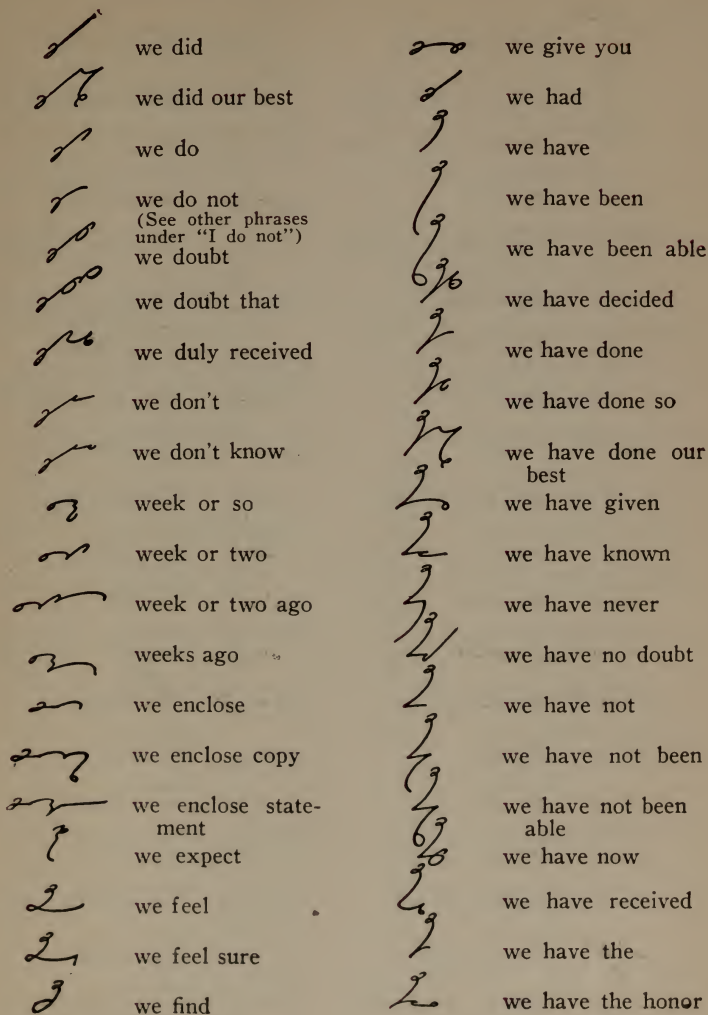 we did
we did our best
we do
we do not
(See other phrases
under "I do not")
we doubt
we doubt that
we duly received
we don't
we don't know
week or so
week or two
week or two ago
weeks ago
we enclose
we enclose copy
we enclose state-
ment
we expect
we feel
we feel sure
we find
we give you
we had
we have
we have been
we have been able
we have decided
we have done
we have done so
we have done our
best
we have given
we have known
we have never
we have no doubt
we have not
we have not been
we have not been
able
we have now
we have received
we have the
we have the honor